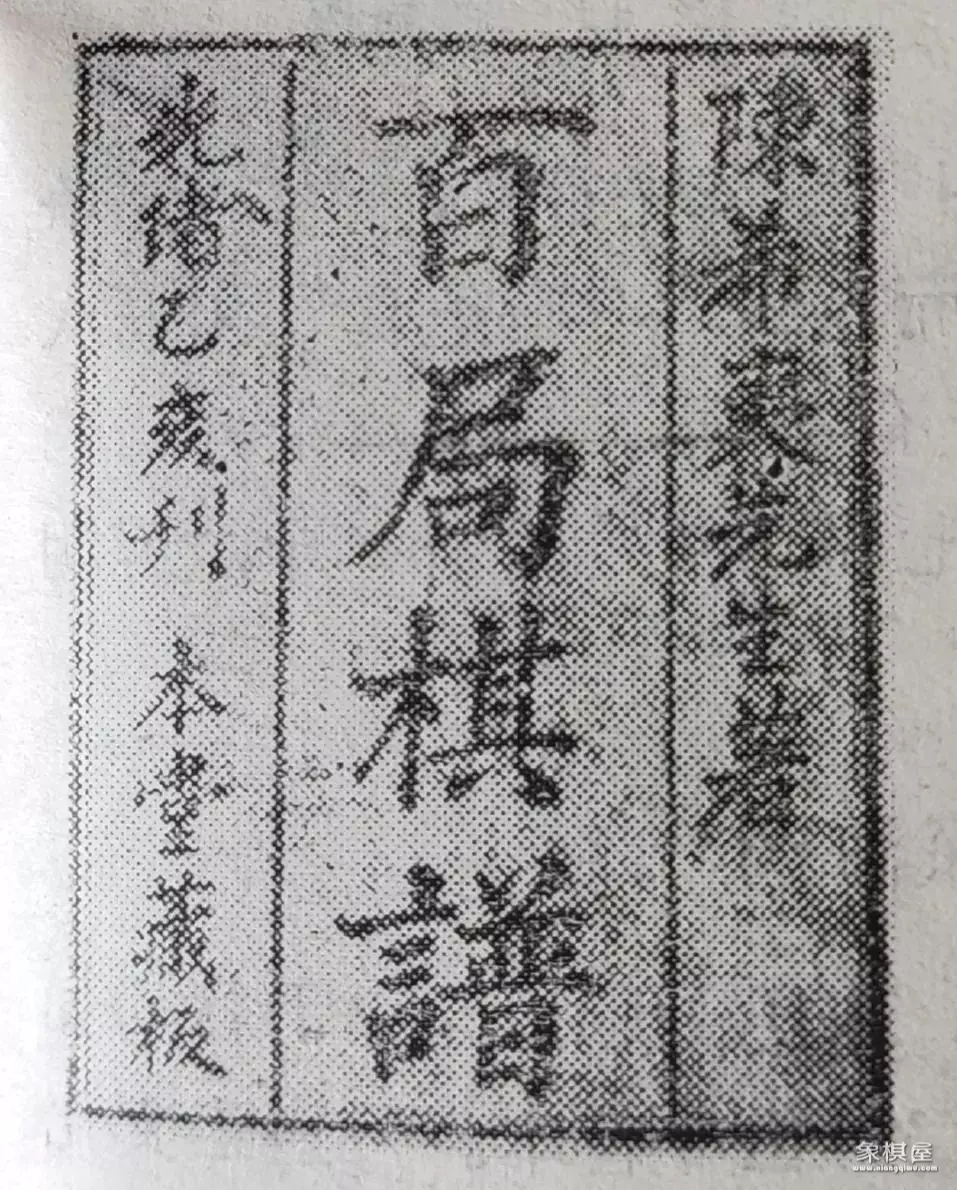 陳希夷先生著
百局棋譜
光緒乙亥刊 本堂藏板
象棋屋
www.xiangqiwu.com